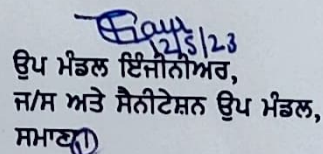 12/5/23
ਉਪ ਮੰਡਲ ਇੰਜੀਨੀਅਰ,
ਜ/ਸ ਅਤੇ ਸੈਨੀਟੇਸ਼ਨ ਉਪ ਮੰਡਲ,
ਸਮਾਣਾ(1)